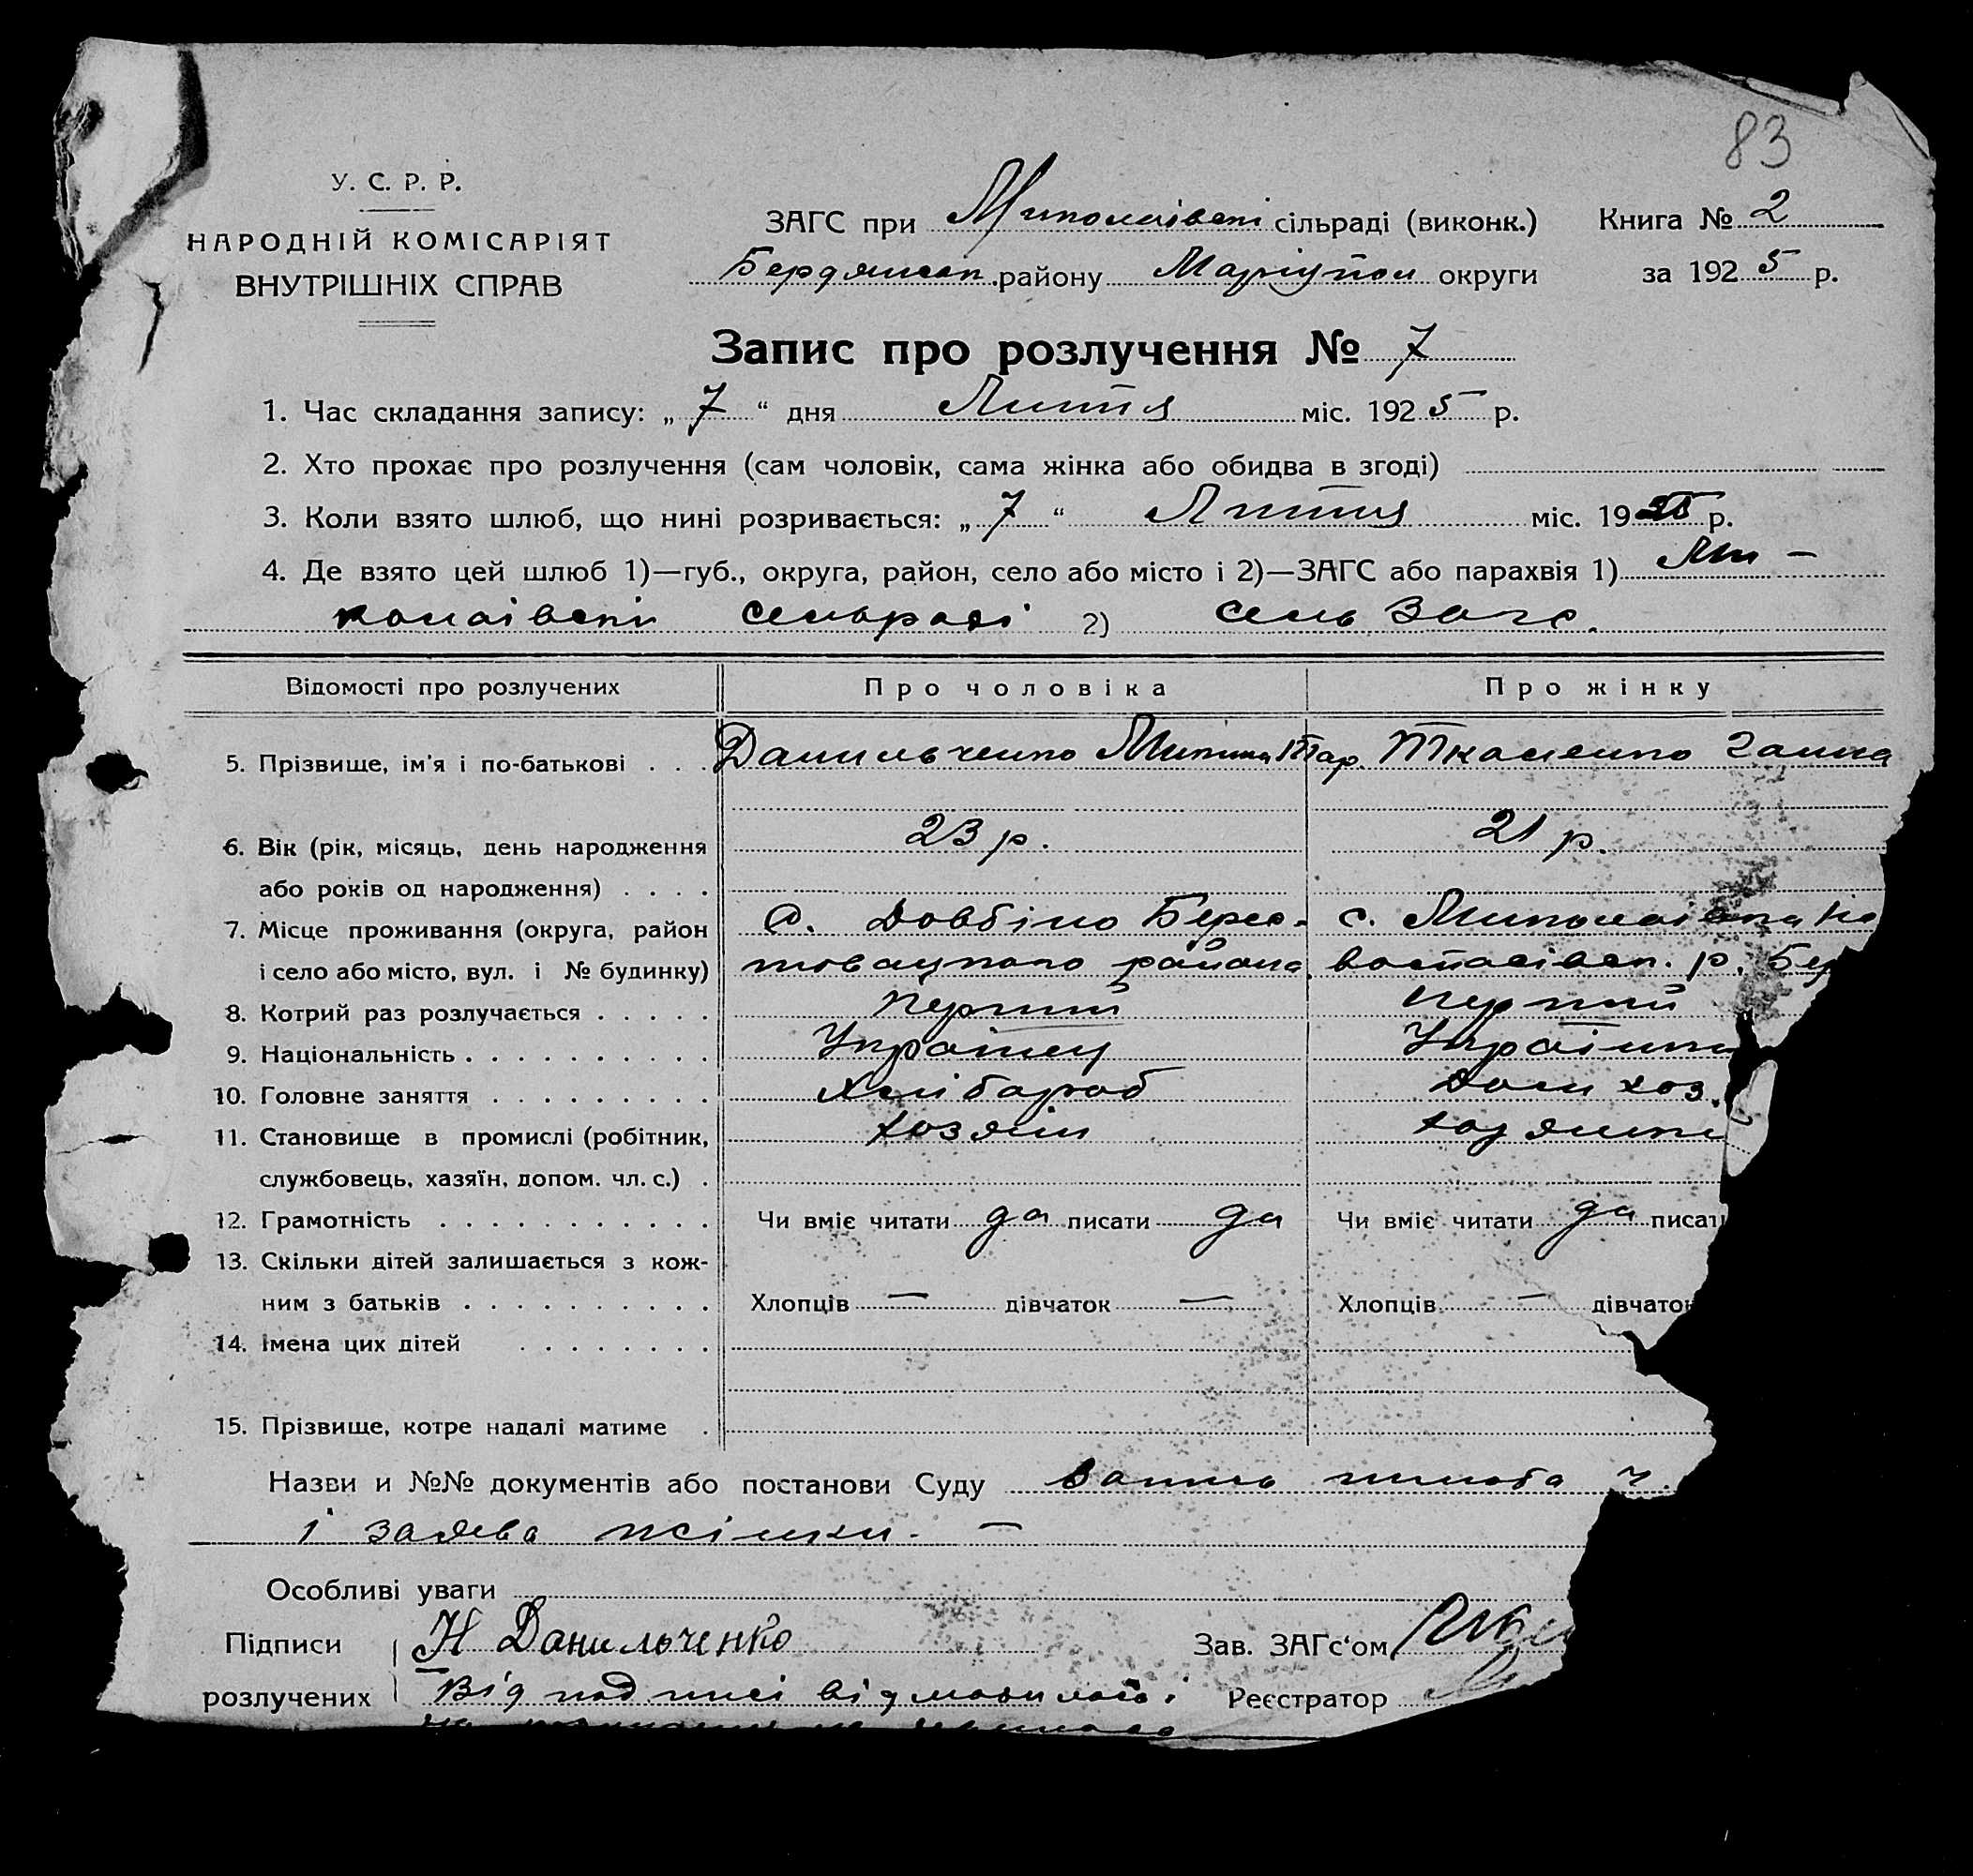 83
У. С. Р. Р.
НАРОДНІЙ КОМІСАРІЯТ
ВНУТРІШНІХ СПРАВ
ЗАГС при Миколаівскі сільраді (виконк.) Книга № 2
Бердянськ. району Маріупол округи за 1925 р.
Запис про розлучення № 7
1. Час складання запису: „7“ дня Лютня міс. 1925 р.
2. Хто прохає про розлучення (сам чоловік, сама жінка або обидва в згоді)
3. Коли взято шлюб, що нині розривається: „7“ Лютня міс. 19 р.
4. Де взято цей шлюб 1)—губ., округа, район, село або місто і 2)—ЗАГС або парахвія 1) Ми-
колаівскі сельраді 2) сель Загс.
Відомості про розлучених Про чоловіка Про жінку
5. Прізвище, ім'я і по-батькові . . . Данильченко Микита Тар. Ткаченко Ганна
6. Вік (рік, місяць, день народження 23 р. 21 р.
або років од народження) . . . .
7. Місце проживання (округа, район с. Довбіно Берес- с. Миколаівка Но
і село або місто, вул. і № будинку) товацкого района. воспасівск. р. Бер
8. Котрий раз розлучається . . . . . Перший Перший
9. Національність . . . . . . . . . . Украінец Украінка
10. Головне заняття . . . . . . . . . Хлібароб Дом хоз.
11. Становище в промислі (робітник, хозяін хозяйка
службовець, хазяїн, допом. чл. с.) .
12. Грамотність . . . . . . . . . . . Чи вміє читати да писати да Чи вміє читати да писат
13. Скільки дітей залишається з кож-
ним з батьків . . . . . . . . . . Хлопців — дівчаток — Хлопців — дівчаток
14. Імена цих дітей . . . . . . . .
15. Прізвище, котре надалі матиме .
Назви и №№ документів або постанови Суду Запись шлюба ч.
і заява жінки. —
Особливі уваги
Підписи Н Данильченко Зав. ЗАГс‘ом
розлучених Від подписі відмовилась і Реєстратор